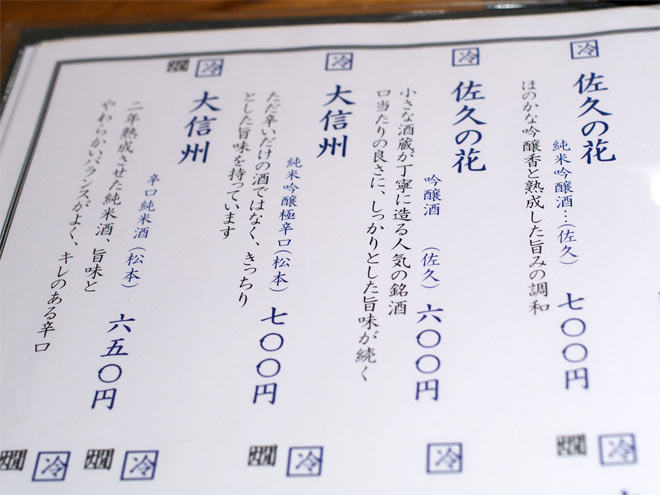 冷
佐久の花
純米吟醸酒…(佐久)
七〇〇円
ほのかな吟醸香と熟成した旨みの調和
冷
佐久の花
吟醸酒
(佐久)
六〇〇円
小さな酒蔵が丁寧に造る人気の銘酒
口当たりの良さに、しっかりとした旨味が続く
冷
大信州
純米吟醸極辛口(松本)
七〇〇円
ただ辛いだけの酒ではなく、きっちり
とした旨味を持っています
冷
燗
大信州
辛口純米酒(松本)
六五〇円
二年熟成させた純米酒、旨味と
やわらかいバランスがよく、キレのある辛口
冷
燗
冷
冷
燗
冷
燗
冷
燗